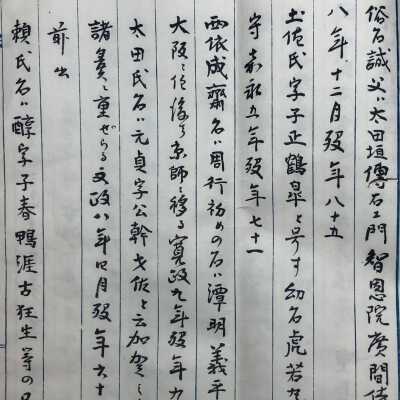 俗名誠父ハ太田垣傳右エ門智恩院廣間侍
八年十二月歿年八十五
土佐氏字子正鶴皐と号す幼名虎若
守嘉永五年歿年七十一
西依成齋名ハ周行初めの名ハ潭明義平
大阪ニ住後ち京師ニ移る寛政九年歿年九
太田氏名ハ元貞字公幹才佐と云加賀ニ
諸ニ重ぜらる文政八年四月歿年六十
前出
頼氏名ハ醇字子春鴨涯古狂生等の